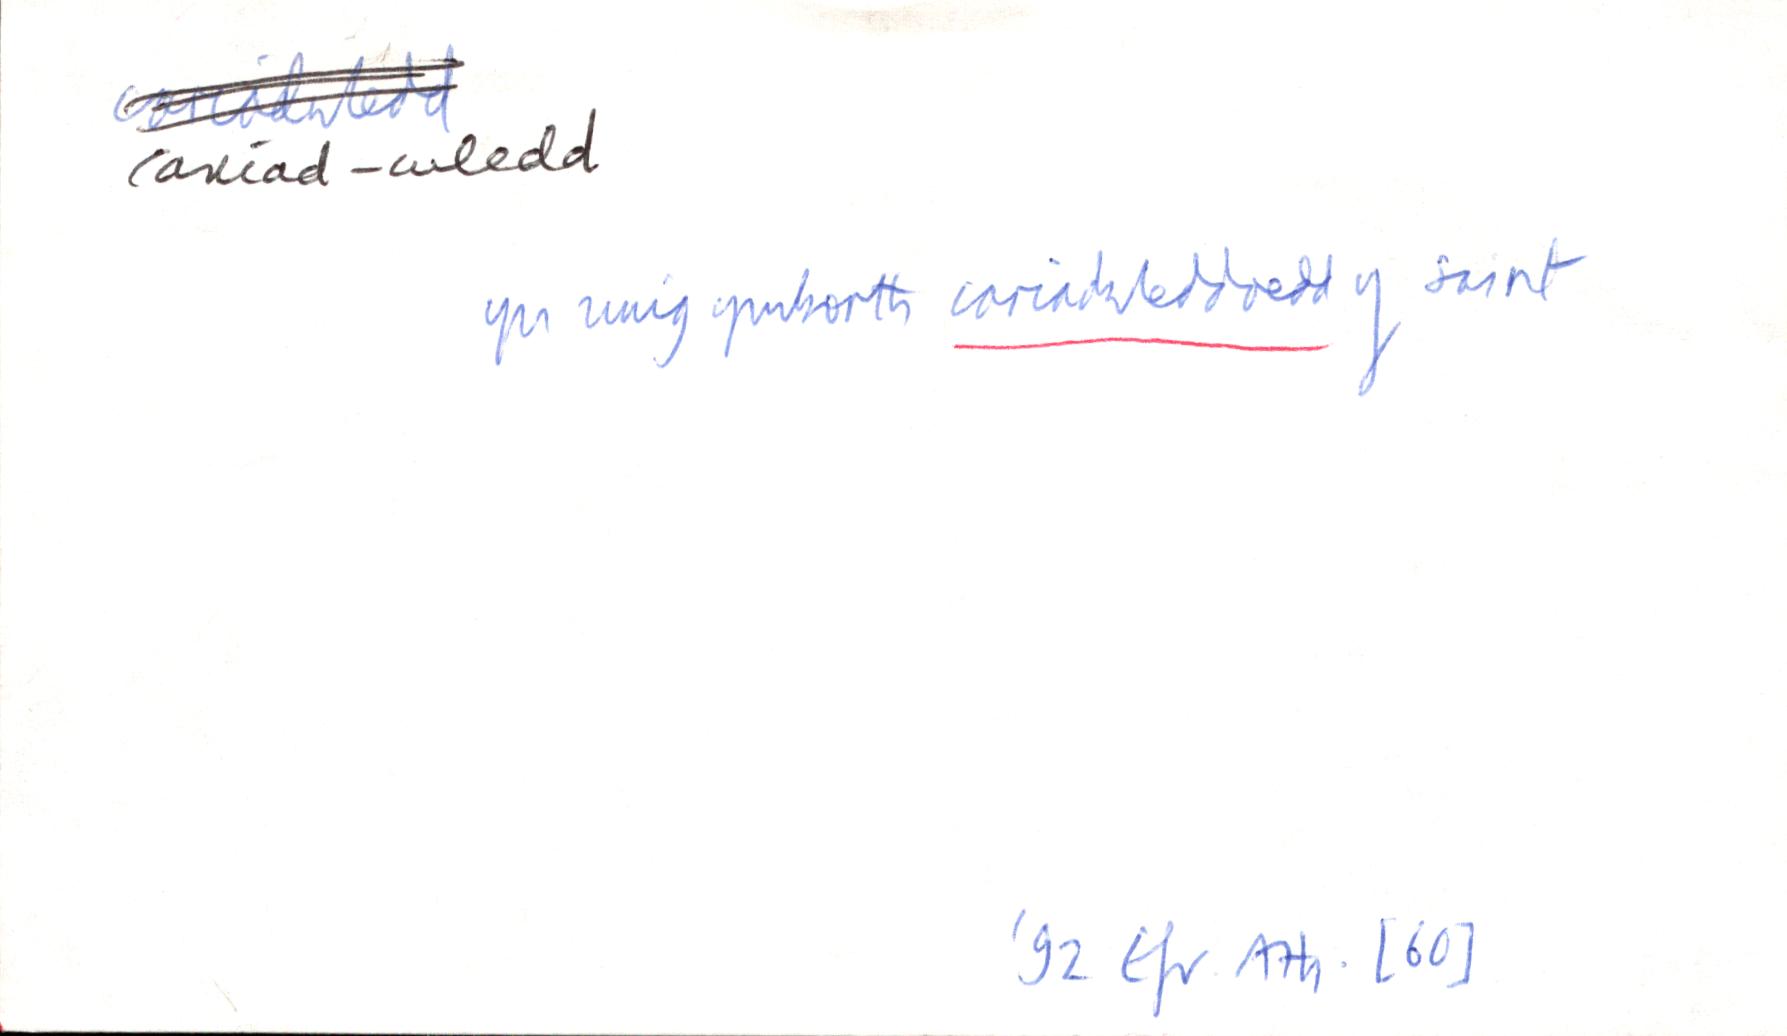 cariadwledd
cariad-wledd
yn unig ymborth cariadwleddoedd y saint
'92 Efr. Ath. [60]